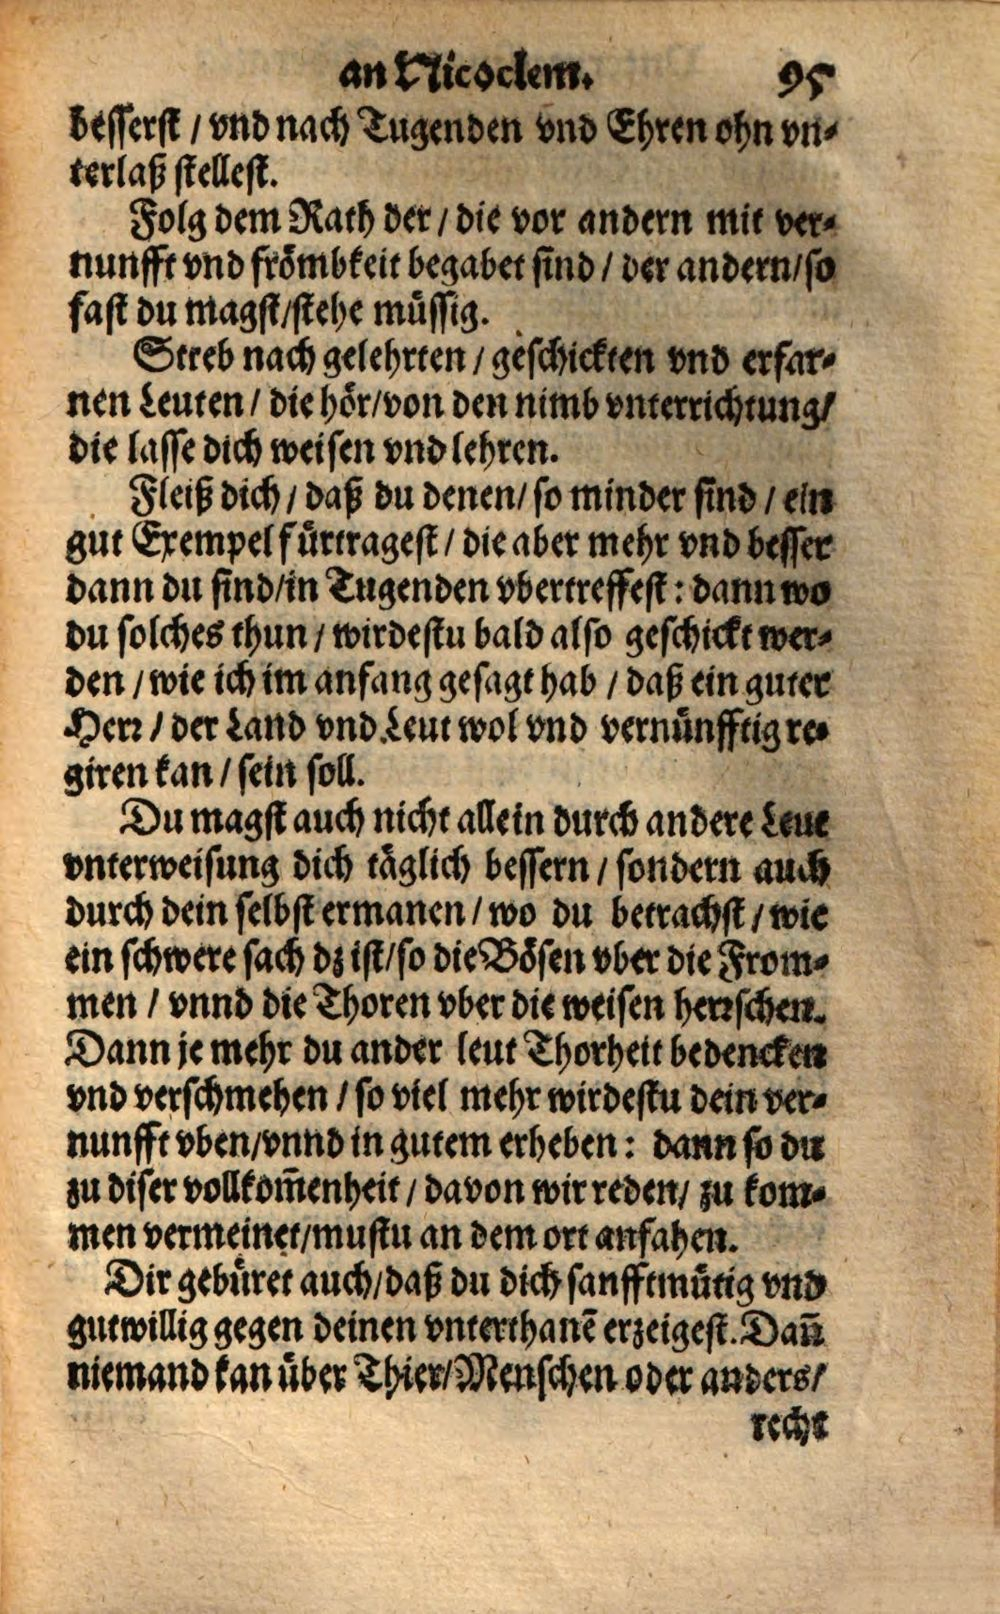 an Nicoclem. 95
besserst / vnd nach Tugenden vnd Ehren ohn vn-
terlaß stellest.
Folg dem Rath der / die vor andern mit ver-
nunfft vnd frömbkeit begabet sind / der andern/so
fast du magst/stehe müssig.
Streb nach gelehrten / geschickten vnd erfar-
nen Leuten / die hör/von den nimb vnterrichtung/
die lasse dich weisen vnd lehren.
Fleiß dich / daß du denen/ so minder sind / ein
gut Exempel fürtragest / die aber mehr vnd besser
dann du sind/in Tugenden vbertreffest: dann wo
du solches thun / wirdestu bald also geschickt wer-
den / wie ich im anfang gesagt hab / daß ein guter
Herr / der Land vnd Leut wol vnd vernünfftig re-
giren kan / sein soll.
Du magst auch nicht allein durch andere Leut
vnterweisung dich täglich bessern / sondern auch
durch dein selbst ermanen / wo du betrachst / wie
ein schwere sach dz ist/so die Bösen vber die From-
men / vnnd die Thoren vber die weisen herrschen.
Dann je mehr du ander leut Thorheit bedencken
vnd verschmehen / so viel mehr wirdestu dein ver-
nunfft vben/vnnd in gutem erheben: dann so du
zu diser vollkom̄enheit / davon wir reden/ zu kom-
men vermeinet/mustu an dem ort anfahen.
Dir gebüret auch/daß du dich sanfftmütig vnd
gutwillig gegen deinen vnterthanē erzeigest. Dañ
niemand kan über Thier/Menschen oder anders/
recht